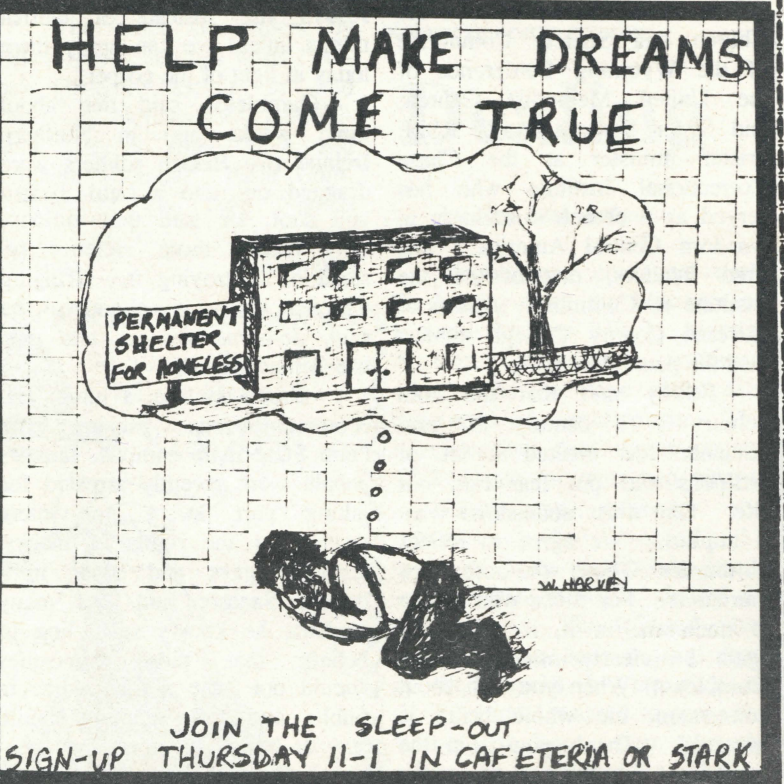 HELP MAKE DREAMS
COME TRUE
PERMANENT
SHELTER
FOR HOMELESS
W. HARVEY
JOIN THE SLEEP-OUT
SIGN-UP THURSDAY 11-1 IN CAFETERIA OR STARK